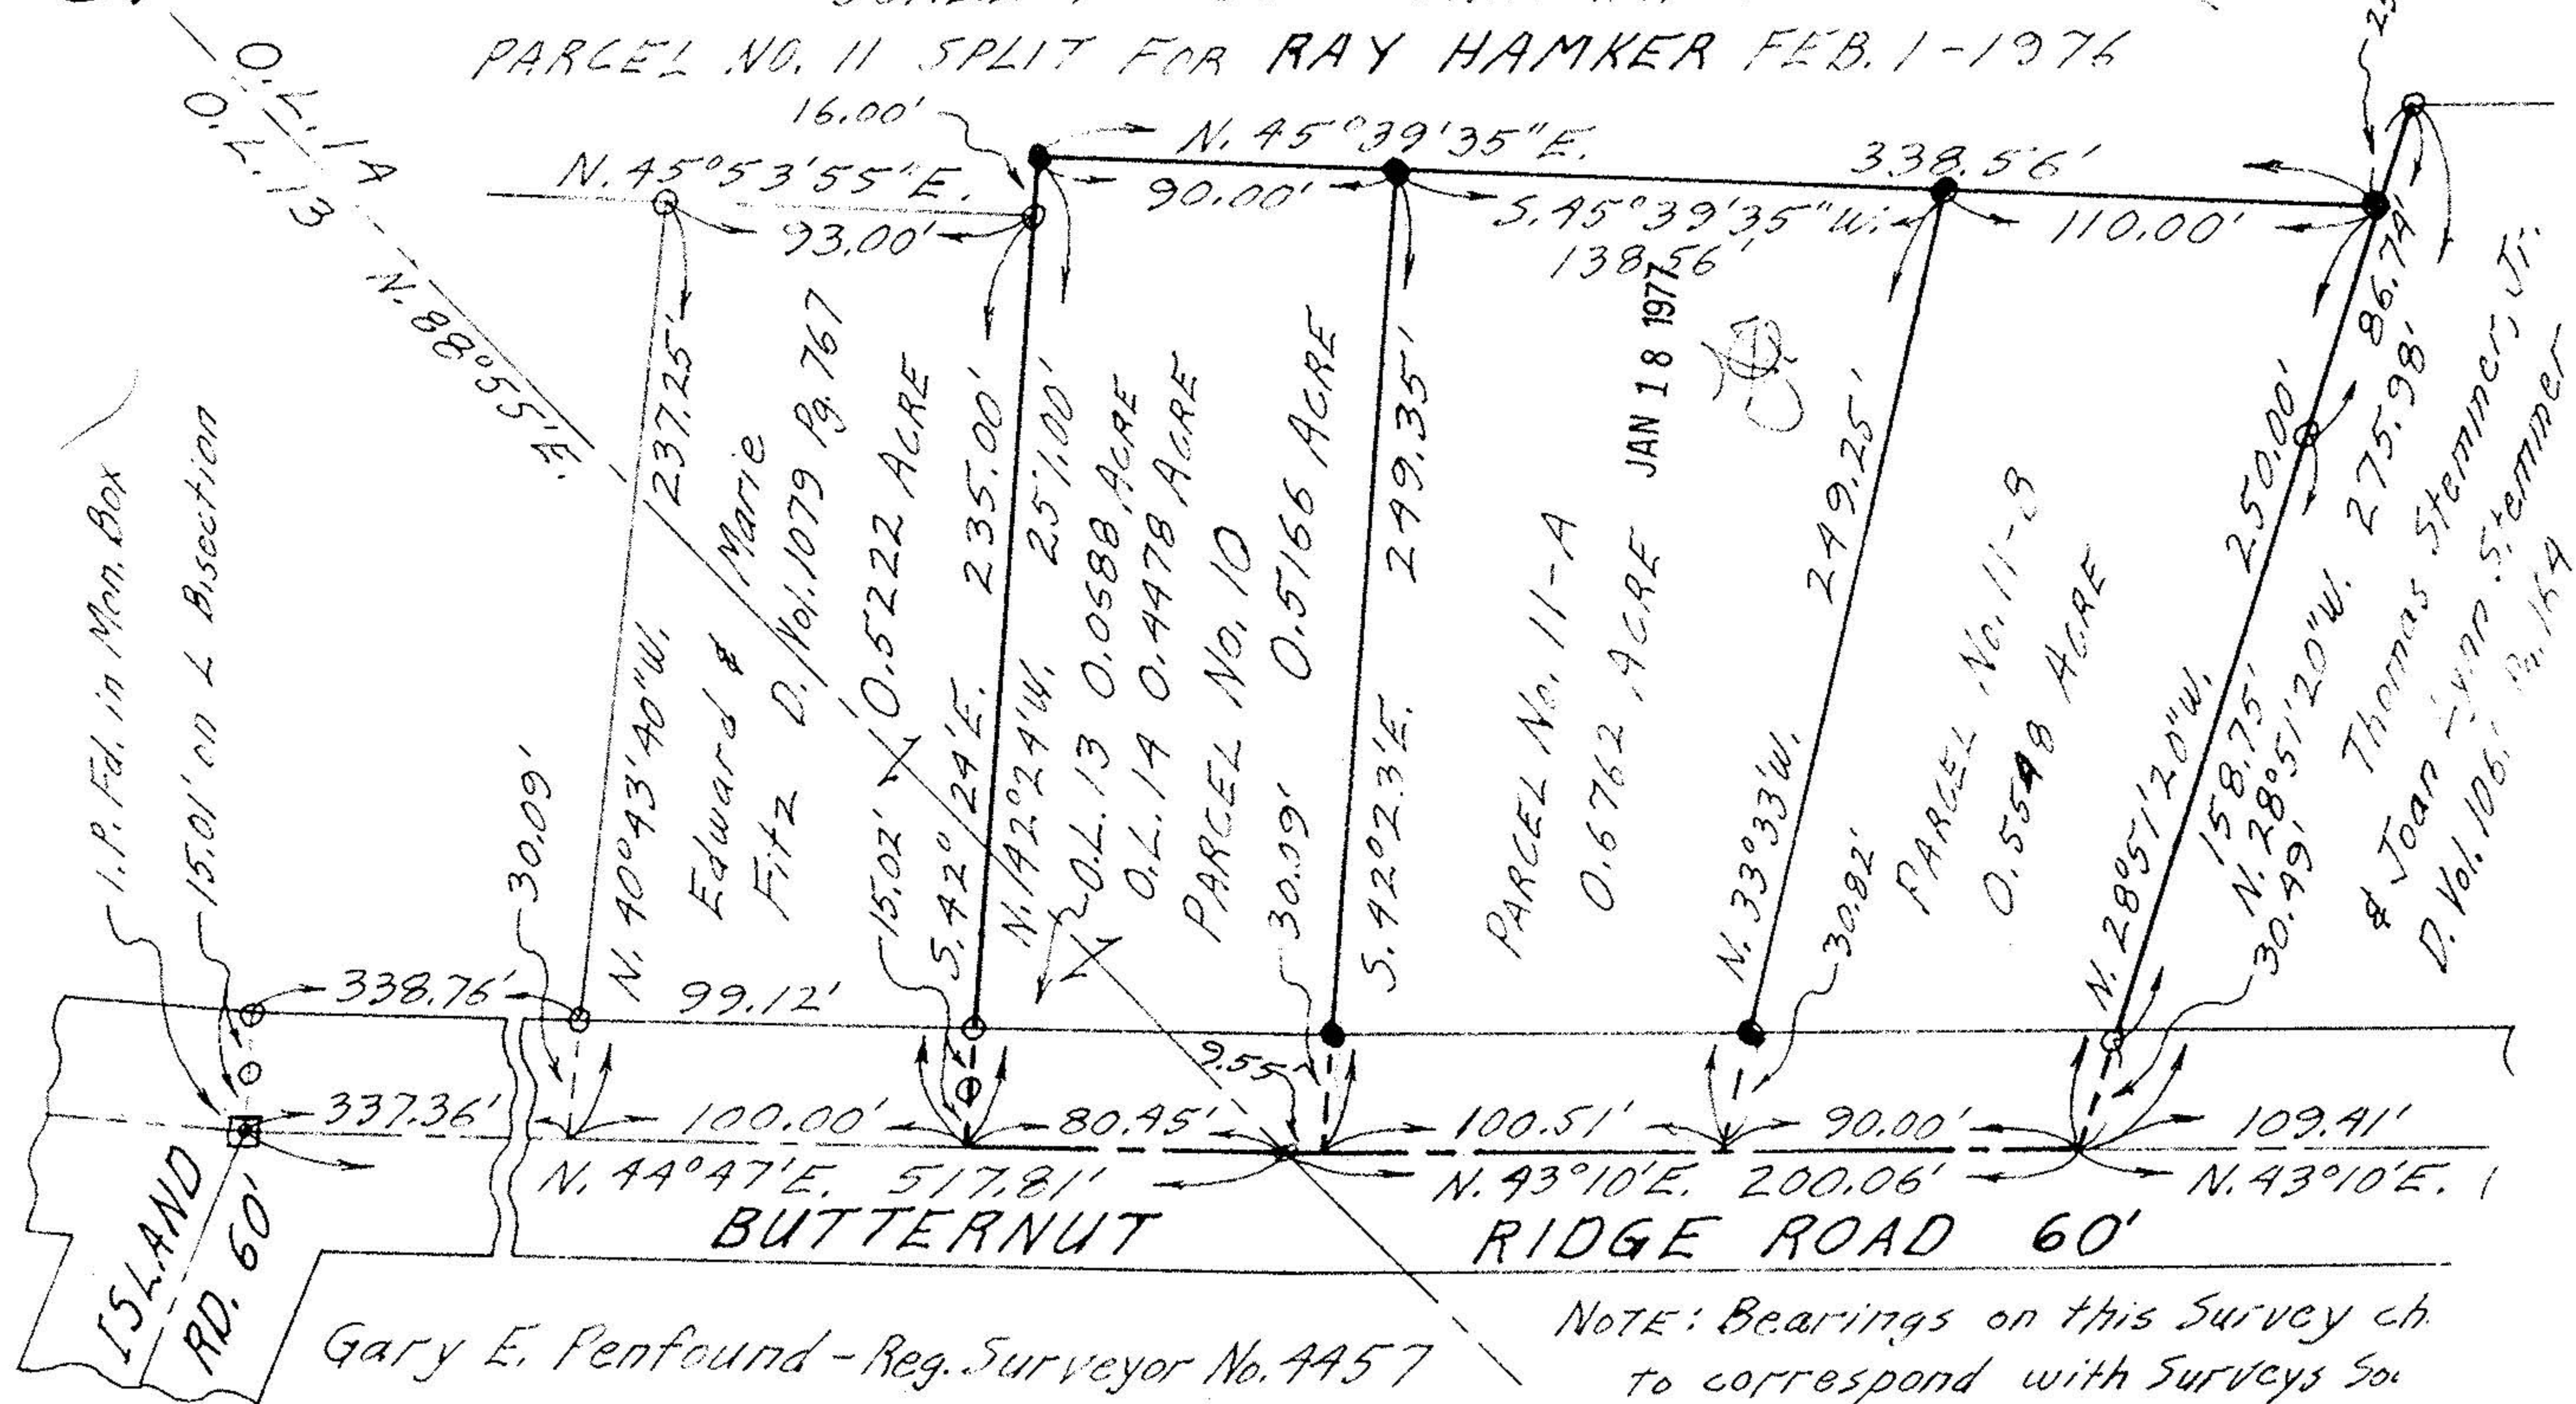 PARCEL NO. 11 SPLIT FOR RAY HAMKER FEB. 1-1976
O.L. 14
O.L. 13
N. 88°55'E.
16.00'
N. 45°39'35"E.
338.56'
N. 45°53'55"E.
93.00'
90.00'
S. 45°39'35"W.
138.56'
110.00'
JAN 18 1977
I.P. Fd. in Mon. Box
15.01' on L Bisection
30.09'
N. 40°43'40"W. 237.25'
Edward & Marie
Fitz D. Vol. 1079 Pg. 767
0.5222 ACRE
15.02'
S. 42°24'E. 235.00'
N. 42°24'W. 251.00'
O.L. 13 0.0688 ACRE
O.L. 14 0.4478 ACRE
PARCEL No. 10
0.5166 ACRE
30.09'
S. 42°23'E. 249.35'
PARCEL No. 11-A
0.6762 ACRE
N. 33°33'W. 249.25'
30.82'
PARCEL No. 11-B
0.5548 ACRE
N. 28°51'20"W. 250.00'
86.74'
158.75'
N. 28°51'20"W. 275.98'
30.49'
Thomas Stemmer, Jr.
& Joan Lynn Stemmer
D. Vol. 106 Pg. 164
338.76'
99.12'
9.55'
337.36'
100.00'
80.45'
100.51'
90.00'
109.41'
N. 44°47'E. 517.81'
N. 43°10'E. 200.06'
N. 43°10'E.
BUTTERNUT RIDGE ROAD 60'
ISLAND
RD. 60'
Gary E. Penfound - Reg. Surveyor No. 4457
NOTE: Bearings on this Survey ch
to correspond with Surveys So